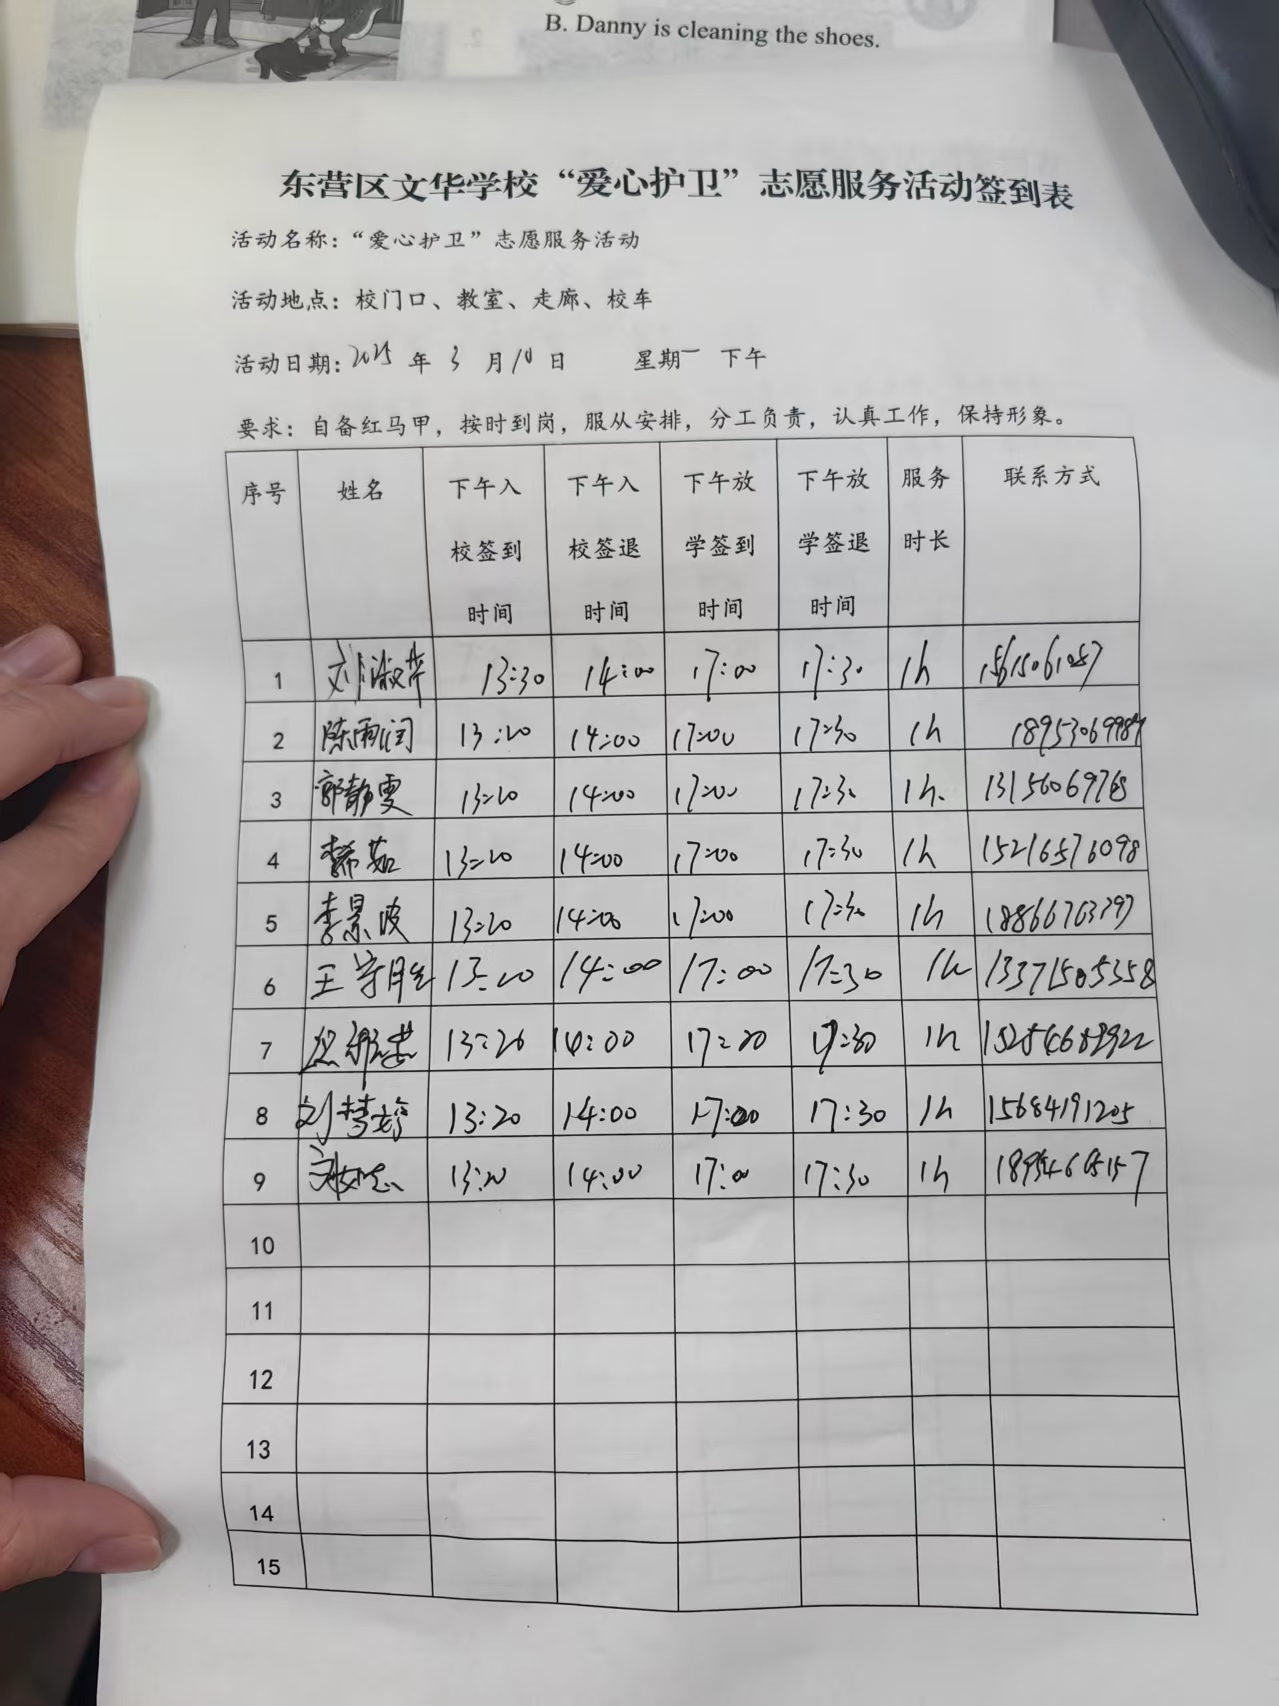 B. Danny is cleaning the shoes.
东营区文华学校“爱心护卫”志愿服务活动签到表
活动名称：“爱心护卫”志愿服务活动
活动地点：校门口、教室、走廊、校车
活动日期：2025年3月10日 星期一 下午
要求：自备红马甲，按时到岗，服从安排，分工负责，认真工作，保持形象。
序号 姓名 下午入校签到时间 下午入校签退时间 下午放学签到时间 下午放学签退时间 服务时长 联系方式
1 刘淑芹 13:30 14:00 17:00 17:30 1h 15615061057
2 陈雨润 13:20 14:00 17:00 17:30 1h
3 郭静雯 13:20 14:00 17:00 17:30 1h. 13156069768
4 13:20 14:00 17:00 17:30 1h 15216576098
5 李景波 13:20 14:00 17:00 17:30 1h 18866763797
6 王守胜 13:20 14:00 17:00 17:30 1h 13371505358
7 13:20 14:00 17:00 17:30 1h
8 刘梦婷 13:20 14:00 17:00 17:30 1h 15684191205
9 13:20 14:00 17:00 17:30 1h
10
11
12
13
14
15